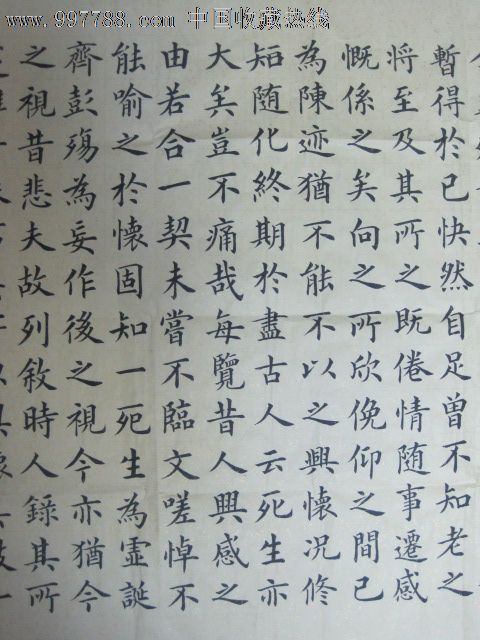 www.997788.com 中国收藏热线
暫得於己快然自足曾不知老之
将至及其所之既倦情随事遷感
慨係之矣向之所欣俛仰之間已
為陳迹猶不能不以之興懷况修
短随化終期於盡古人云死生亦
大矣豈不痛哉每覽昔人興感之
由若合一契未嘗不臨文嗟悼不
能喻之於懷固知一死生為虛誕
齊彭殤為妄作後之視今亦猶今
之視昔悲夫故列敘時人錄其所